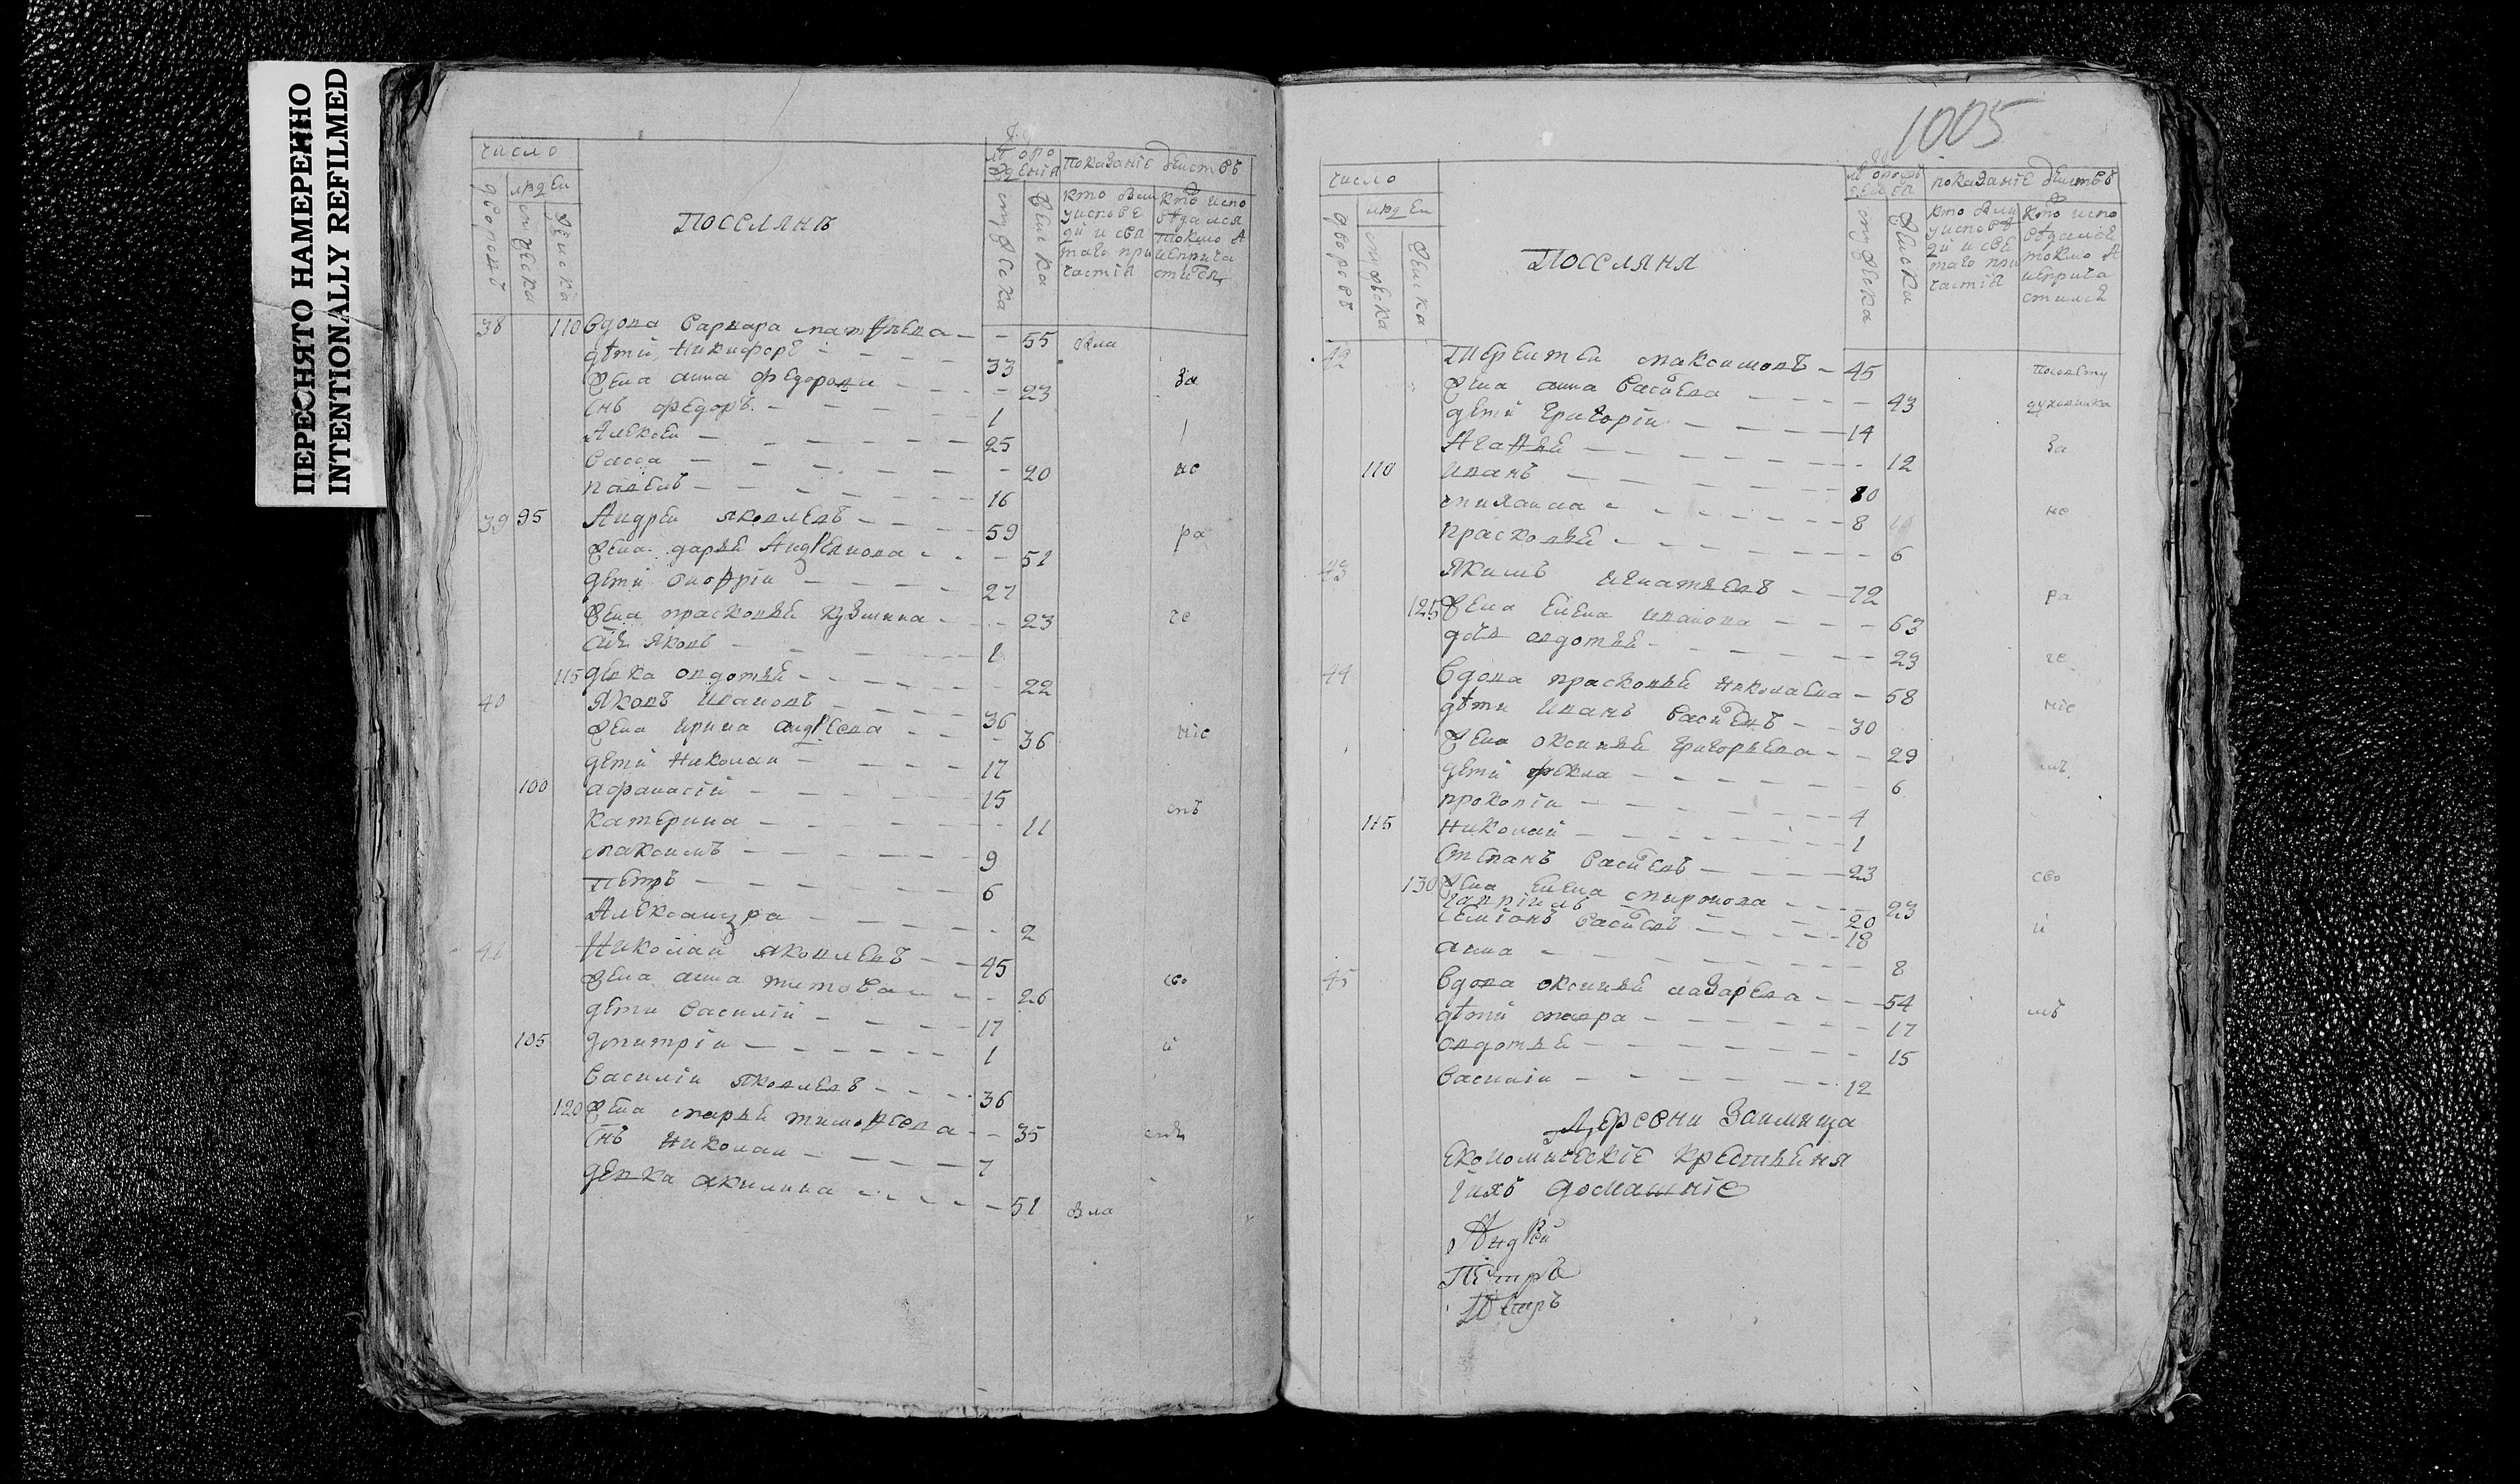 ПЕРЕСНЯТО НАМЕРЕННО
INTENTIONALLY REFILMED
число
людеи
дворовъ
мужеска
женска
поселянъ
показаніе действъ
мужеска
женска
кто были
у испове
ди и свя
таго при
частія
кто испо
ведался
токмо а
неприча
стился
38 110 вдова варвара матвѣева - - 55 была
дѣти никифоръ - - - 33
жена анна федорова - - 23 за
снъ федоръ - - - 1
Алексеи - - - 25
васса - - - 20 не
павелъ - - - 16
39 95 Андреи яковлевъ - - - 59 ра
жена дарья Андреянова - - - 51
дети онофріи - - - 27
жена прасковья кузмина - - 23 че
снъ яковъ - - - 1
115 девка овдотья - - - 22
40 яковъ ивановъ - - - 36
жена ирина андреева - - - 36 ніе
дети николаи - - - 17
100 афанасіи - - - 15
катерина - - - 11 мъ
максимъ - - - 9
петръ - - - 6
Александра - - - 2
41 Николаи яковлевъ - - 45
жена анна титова - - 26 сво
дети василіи - - - 17
105 дмитріи - - - 1 и
василіи яковлевъ - - - 36
120 жена марья тимофеева - - 35 мъ
снъ николаи - - - 7
девка акилина - - - 51 была
1005
число
людеи
дворовъ
мужеска
женска
поселяня
показаніе действъ
мужеска
женска
кто были
у исповѣ
ди и свя
таго при
частія
кто испо
ведался
токмо а
неприча
стился
42 Терентеи максимовъ - 45 посовету
жена анна василева - - - 43 духовника
дети григоріи - - - 14
Агафья - - - 12 за
110 иванъ - - - 10
михаила - - - 8 не
прасковья - - - 6
43 якимъ игнатьевъ - - 72 ра
125 жена елена иванова - - - 63
дочь овдотья - - - 23 че
44 вдова прасковья николаева - 58
дѣти иванъ василевъ - - 30 ніе
жена оксинья григорьева - - 29
дети фекла - - - 6 мъ
прокопіи - - - 4
115 николай - - - 1
степанъ василевъ - - - 23
130 жена елена миронова - - - 23 сво
гавріилъ - - - 20
семіонъ василевъ - - - 18 и
анна - - - 8
45 вдова оксинья лазарева - - - 54
дѣти мавра - - - 17 мъ
овдотья - - - 15
василіи - - - 12
Деревни Заимища
економическіе крестьяня
ихъ домашніе
Андрей
Петръ
Петръ